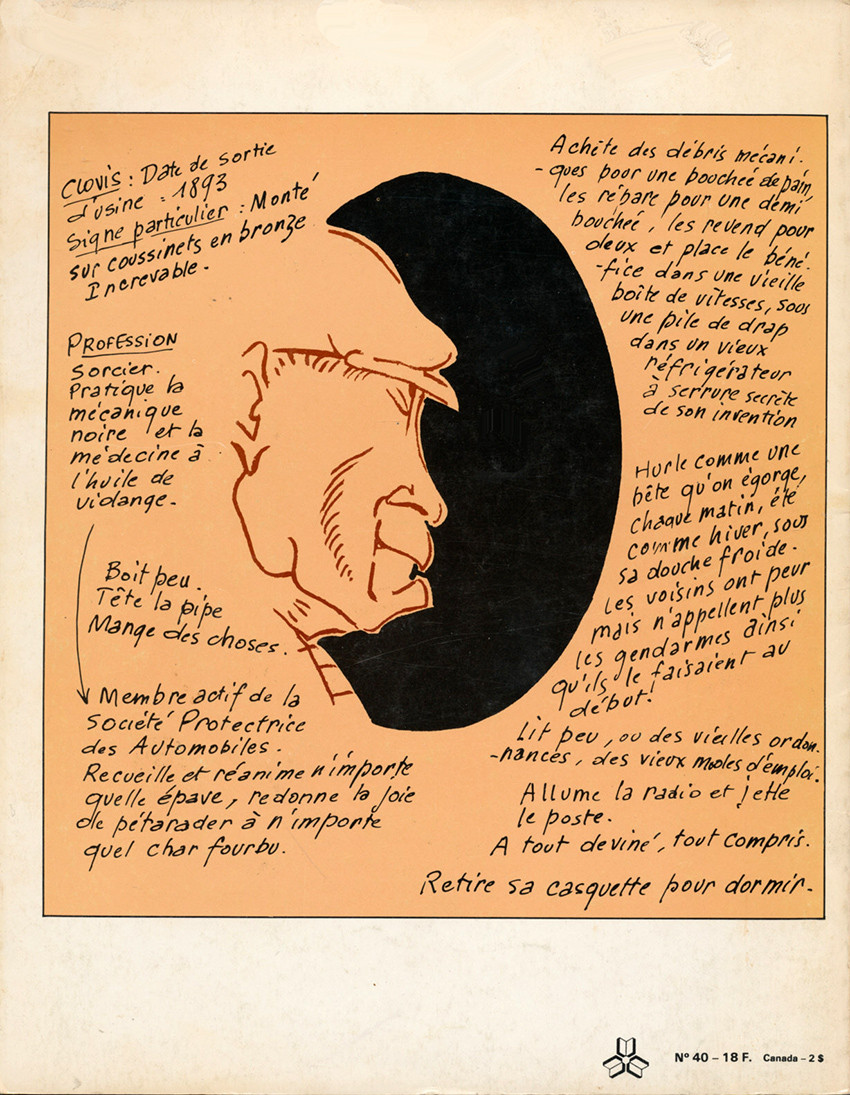 Clovis : Date de sortie
d'usine = 1893
Signe particulier : Monté
sur coussinets en bronze
Increvable.
PROFESSION
Sorcier.
Pratique la
mécanique
noire et la
médecine à
l'huile de
vidange.
Boit peu.
Tête la pipe
Mange des choses.
Membre actif de la
Société Protectrice
des Automobiles.
Recueille et réanime n'importe
quelle épave, redonne la joie
de pétarader à n'importe
quel char fourbu.
Achète des débris mécani-
-ques pour une boucheé de pain,
les répare pour une demi
boucheé, les revend pour
deux et place le béné-
-fice dans une vieille
boîte de vitesses, sous
une pile de drap
dans un vieux
réfrigérateur
à serrure secrète
de son invention
Hurle comme une
bête qu'on égorge,
chaque matin, été
comme hiver, sous
sa douche froide.
Les voisins ont peur
mais n'appellent plus
les gendarmes ainsi
qu'ils le faisaient au
début!
Lit peu, ou des vieilles ordon-
-nances, des vieux modes d'emploi.
Allume la radio et jette
le poste.
A tout deviné, tout compris.
Retire sa casquette pour dormir.
N° 40 – 18 F. Canada – 2 $